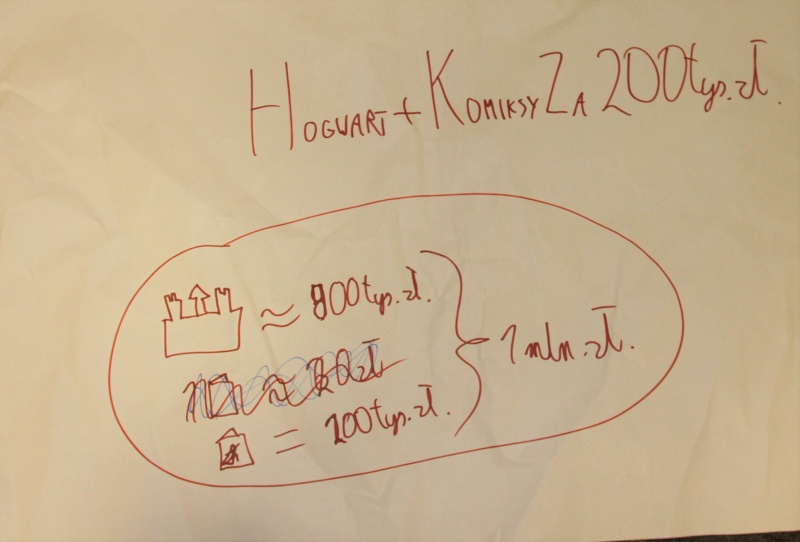 HOGWART + KOMIKSY ZA 200 tys. zł.
≈ 900 tys. zł.
= 100 tys. zł.
1 mln. zł.